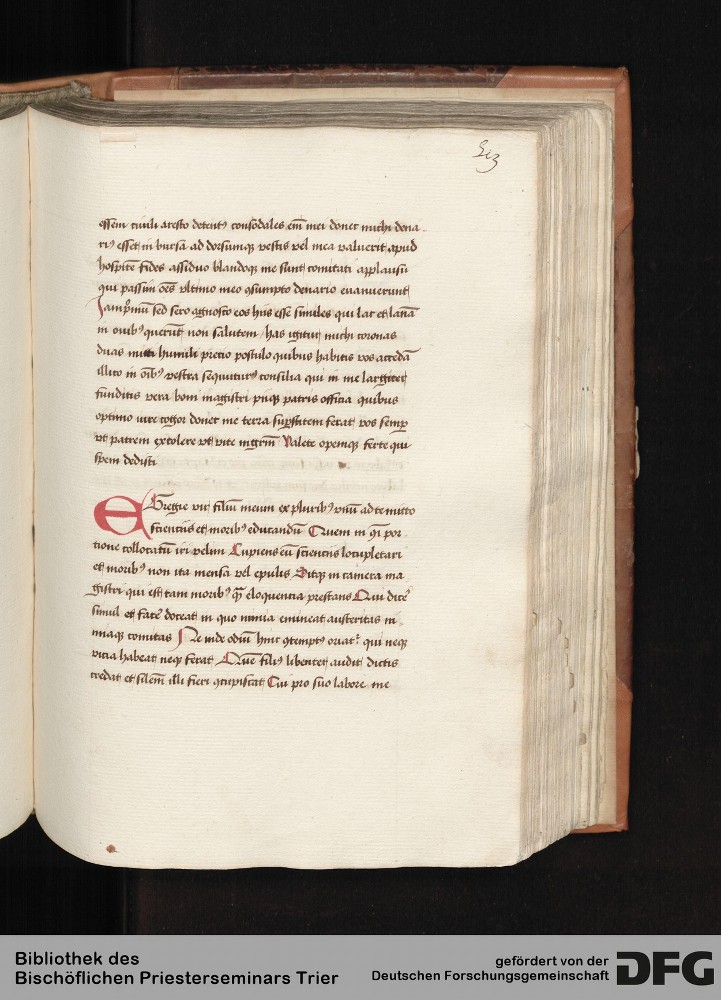 essem civili aresto detentꝰ consodales em̄ mei donec michi dena
riꝰ esset in bursa ad dorsumqꝫ vestis vel mea valuerit apud
hospitē fides assiduo blandoqꝫ me sunt comitati applausu
qui passim oēs vltimo meo ꝯsumpto denario euanuerunt
Iamprimū sed sero agnosco eos hiis esse similes qui lac et lanā
in ouibꝰ querūt non salutem has igitur michi coronas
duas humili precio postulo quibus habitis vos accedā
illico in oībꝰ vestra sequuturꝰ consilia qui in me largiter
funditis vera boni magistri piiqꝫ patris officia quibus
optimo iure cogor donec me terra suꝑstitem ferat vos semꝑ
vt patrem extolere vt vite mgrm̄ Valete opemqꝫ ferte cui
spem dedisti
EGregie vir filiū meum ex pluribꝰ vnū ad te mitto
scienciis et moribꝰ educandū Quem in por
tione collocatū iri velim Cupiens eū scienciis locupletari
et moribꝰ non ita mensa vel epulis Sitqꝫ in camera ma
gistri qui est tam moribꝰ qꝫ eloquencia prestans Qui dicē
simul et facē doceat in quo nimia emineat austeritas ni
miaqꝫ comitas Ne inde odiū hinc ꝯtemptꝰ oriatr qui neqꝫ
vicia habeat neqꝫ ferat Quē filiꝰ libenter audiat dictis
credat et silem illi fieri ꝯcupiscat Cui pro suo labore me
Bibliothek des
Bischöflichen Priesterseminars Trier
gefördert von der
Deutschen Forschungsgemeinschaft
DFG